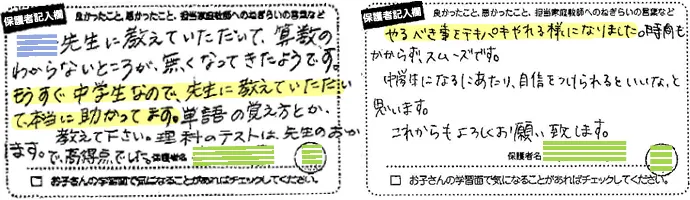 保護者記入欄
良かったこと、悪かったこと、担当家庭教師へのねぎらいの言葉など
先生に教えていただいて、算数の
わからないところが、無くなってきたようです。
もうすぐ中学生なので、先生に教えていただいい
て、本当に助かってます。単語の覚え方とか、
教えて下さい。理科のテストは、先生のおか
げで、高得点でした。
保護者名
お子さんの学習面で気になることがあればチェックしてください。
保護者記入欄
良かったこと、悪かったこと、担当家庭教師へのねぎらいの言葉など
やるべき事をテキパキやれる様になりました。時間も
かからず、スムーズです。
中学生になるにあたり、自信をつけられるといいな、と
思います。
これからもよろしくお願い致します。
保護者名
お子さんの学習面で気になることがあればチェックしてください。